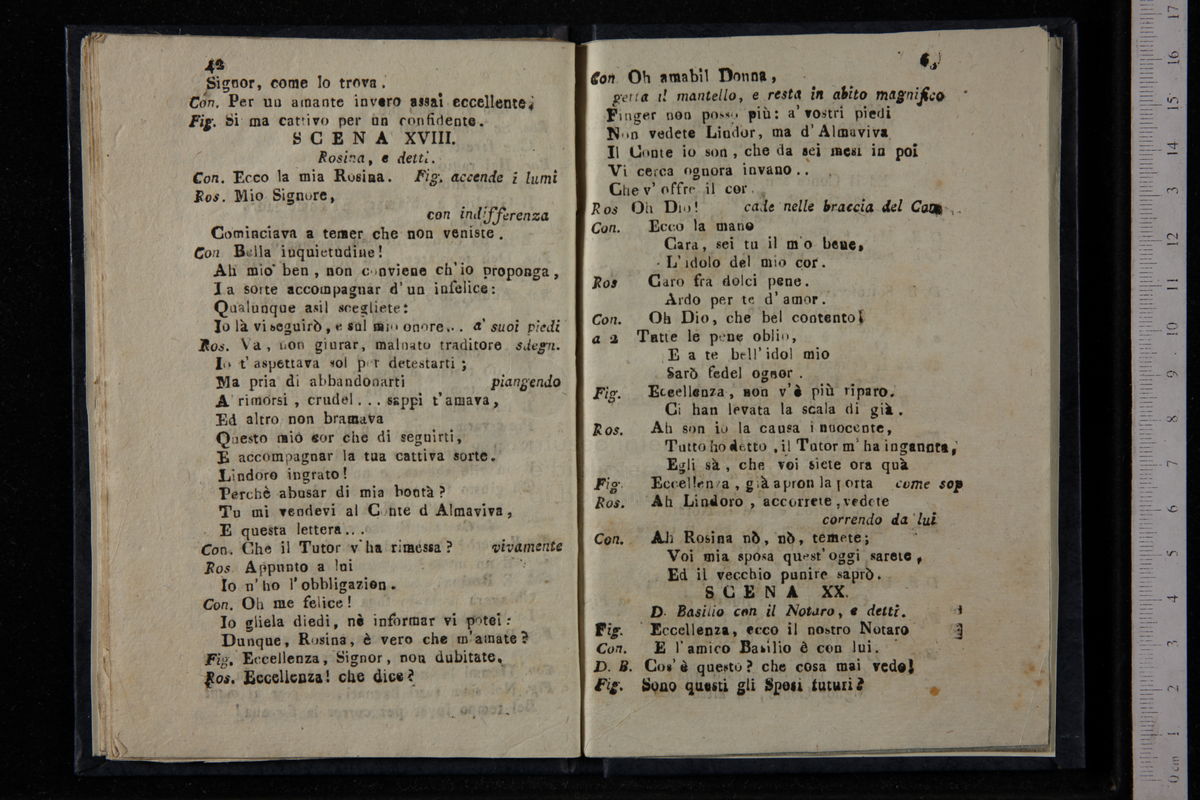 42
Signor, come lo trova.
Con. Per un amante invero assai eccellente,
Fig. Si ma cattivo per un confidente.
SCENA XVIII.
Rosina, e detti.
Con. Ecco la mia Rosina. Fig. accende i lumi
Ros. Mio Signore,
con indifferenza
Cominciava a temer che non veniste.
Con Bella inquietudine!
Ah mio ben, non conviene ch'io proponga,
La sorte accompagnar d'un infelice:
Qualunque asil scegliete:
Io là vi seguirò, e sul mio onore... a' suoi piedi
Ros. Va, non giurar, malnato traditore sdegn.
Io t'aspettava sol per detestarti;
Ma pria di abbandonarti piangendo
A rimorsi, crudel... sappi t'amava,
Ed altro non bramava
Questo mio cor che di seguirti,
E accompagnar la tua cattiva sorte.
Lindoro ingrato!
Perchè abusar di mia bontà?
Tu mi vendevi al Conte d Almaviva,
E questa lettera...
Con. Che il Tutor v'ha rimessa? vivamente
Ros. Appunto a lui
Io n'ho l'obbligazion.
Con. Oh me felice!
Io gliela diedi, nè informar vi potei:
Dunque, Rosina, è vero che m'amate?
Fig. Eccellenza, Signor, non dubitate.
Ros. Eccellenza! che dice?
Con Oh amabil Donna,
getta il mantello, e resta in abito magnifico
Finger non posso più: a'vostri piedi
Non vedete Lindor, ma d'Almaviva
Il Conte io son, che da sei mesi in poi
Vi cerca ognora invano..
Che v'offre il cor.
Ros Oh Dio! cade nelle braccia del Con
Con. Ecco la mano
Cara, sei tu il mio bene,
L'idolo del mio cor.
Ros Caro fra dolci pene.
Ardo per te d'amor.
Con. Oh Dio, che bel contento!
a 2 Tutte le pene oblio,
E a te bell'idol mio
Sarò fedel ognor.
Fig. Eccellenza, non v'è più riparo.
Ci han levata la scala di già.
Ros. Ah son io la causa innocente,
Tutto ho detto, il Tutor m'ha ingannta,
Egli sà, che voi siete ora quà
Fig. Eccellenza, già apron la porta come sop
Ros. Ah Lindoro, accorrete, vedete
correndo da lui
Con. Ah Rosina nò, nò, temete;
Voi mia sposa quest'oggi sarete,
Ed il vecchio punire saprò.
SCENA XX.
D. Basilio con il Notaro, e detti.
Fig. Eccellenza, ecco il nostro Notaro
Con. E l'amico Basilio è con lui.
D. B. Cos'è questo? che cosa mai vedo!
Fig. Sono questi gli Sposi futuri?